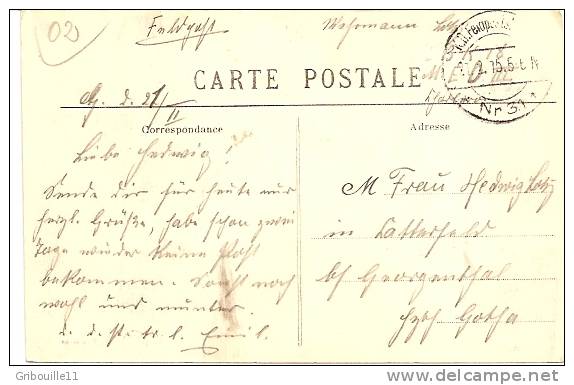 02
Feldpost
Wehrmann
K.D. Feldpost
Nr 31
CARTE POSTALE
d. 21/II
Correspondance
Adresse
Liebe Hedwig!
Sende dir für heute nur
herzl. Grüße, habe schon zwei
Tage wieder keine Post
bekommen. Sonst noch
wohl und munter.
Emil.
M Frau Hedwig Lotz
in Catterfeld
b/ Georgenthal
Hzth Gotha
© Gribouille11
http://www.delcampe.net